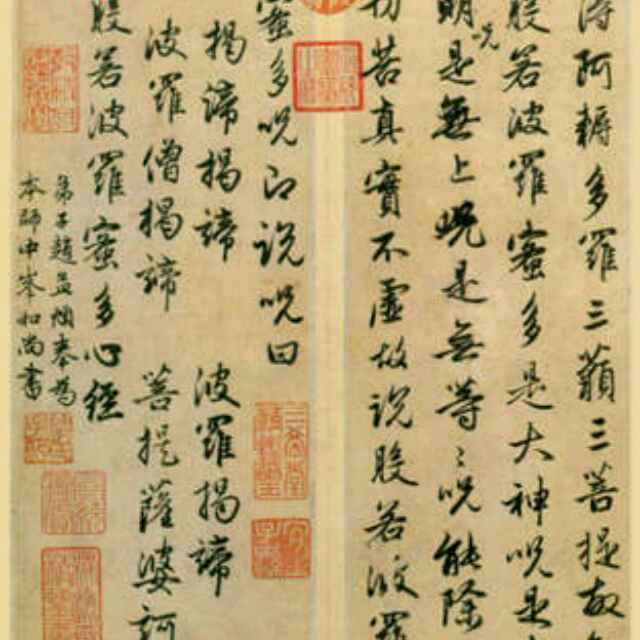 得阿耨多羅三藐三菩提故
般若波羅蜜多是大神呪是
明呪是無上呪是無等〻呪能除
切苦真實不虛故說般若波羅
蜜多呪即說呪曰
揭諦揭諦 波羅揭諦
波羅僧揭諦 菩提薩婆訶
般若波羅蜜多心經
弟子趙孟頫奉為
本師中峯和尚書